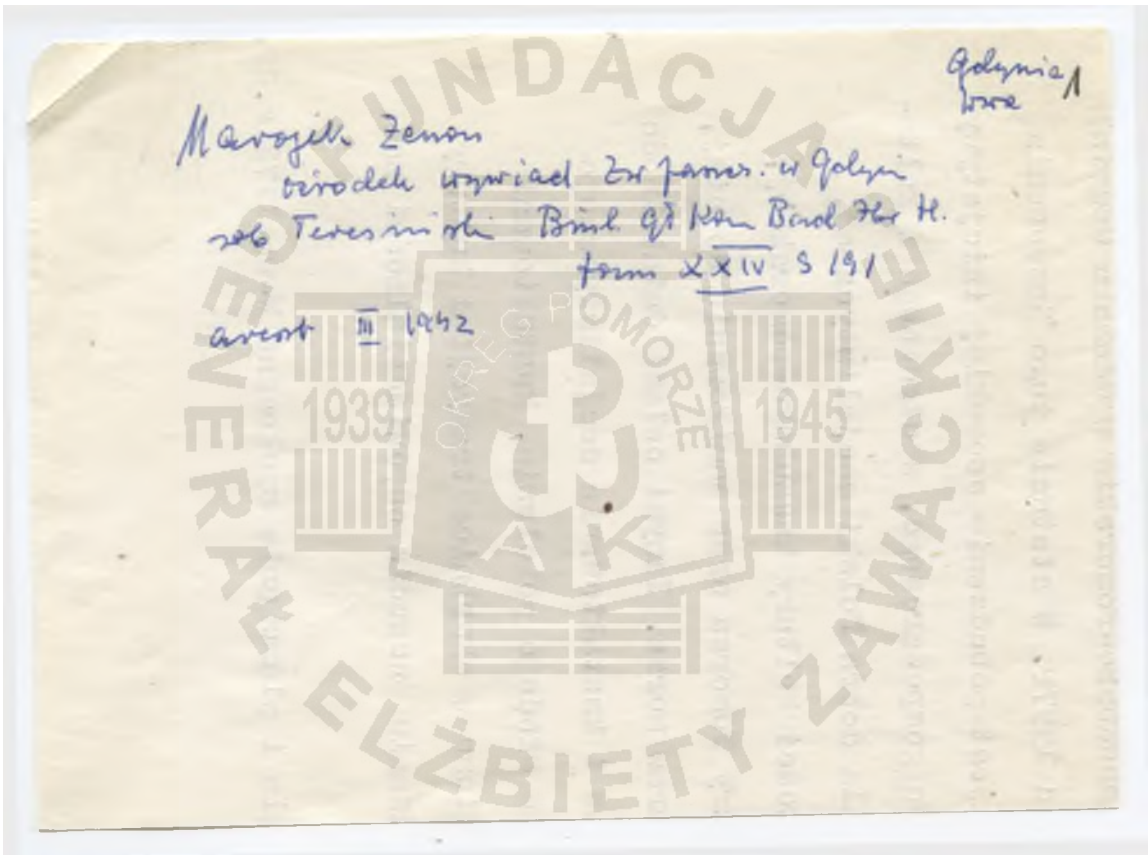 Gdynia 1
wwa
Zenon
ośrodek wywiad Zw panc. w Gdyni
zob Teresiński Biul. Gł Kom Bad Zbr H.
tom XXIV S 191
areszt III 1942
FUNDACJA GENERAŁ ELŻBIETY ZAWACKIEJ
OKRĘG POMORZE
1939 1945
AK